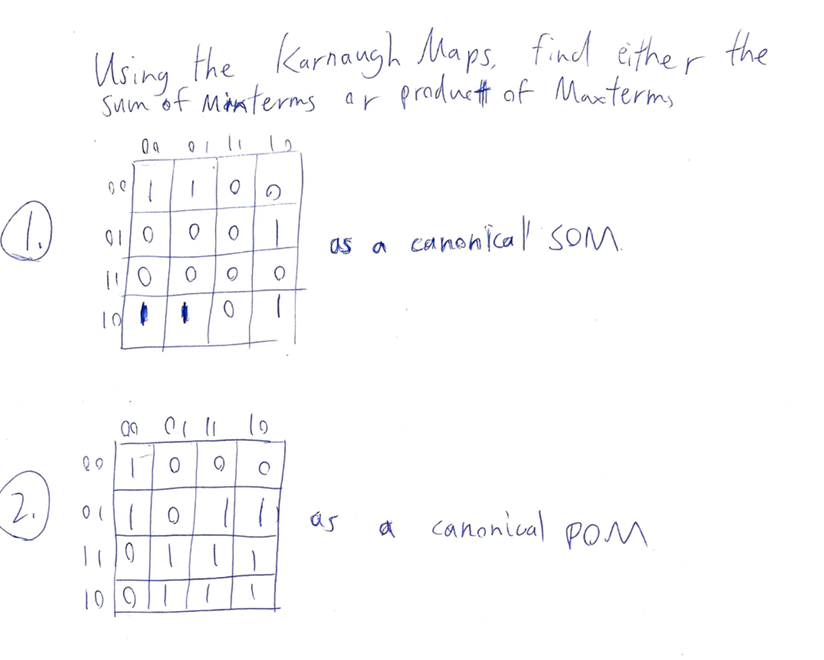 Using the Karnaugh Maps, find either the
sum of Minterms or product of Maxterms
1.
00 01 11 10
00 1 1 0 0
01 0 0 0 1 as a canonical SOM.
11 0 0 0 0
10 1 1 0 1
2.
00 01 11 10
00 1 0 0 0
01 1 0 1 1 as a canonical POM
11 0 1 1 1
10 0 1 1 1